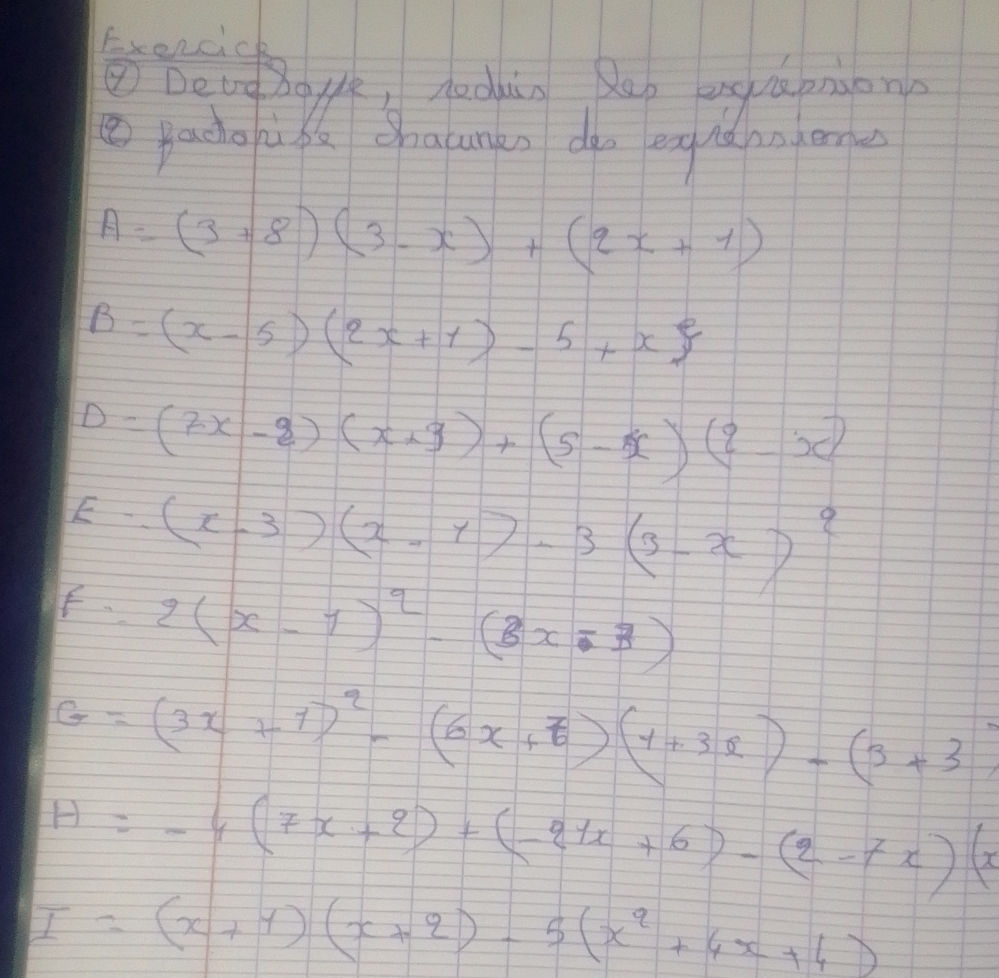 Exercice
① Developpe, reduis les expréssions
② factorise chacunes des expréssions
A = (3 + 8)(3 - x) + (2x + 1)
B = (x - 5)(2x + 1) - 5 + x
D = (7x - 2)(x + 3) + (5 - x)(2 - x)
E = (x - 3)(x - 1) - 3(3 - x)²
F = 2(x - 1)² - (3x - 3)
G = (3x + 1)² - (6x + 6)(1 + 3x) - (3 + 3
H = - 4(7x + 2) + (-21x + 6) - (2 - 7x)(x
I = (x + 1)(x + 2) - 5(x² + 4x + 4)